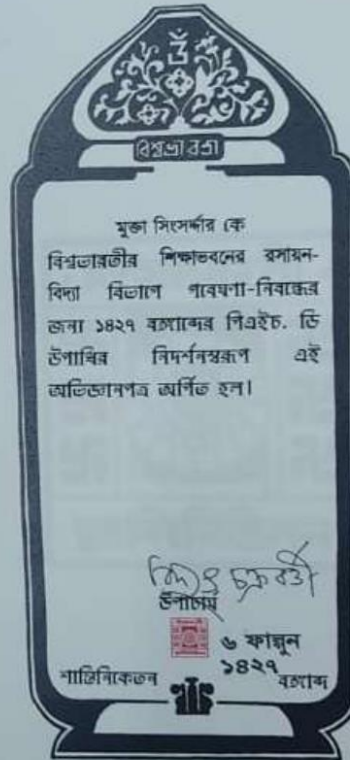 ওঁ
বিশ্বভারতী
মুক্তা সিংসর্দ্দার কে
বিশ্বভারতীর শিক্ষাভবনের রসায়ন-
বিদ্যা বিভাগে গবেষণা-নিবন্ধের
জন্য ১৪২৭ বঙ্গাব্দের পিএইচ. ডি
উপাধির নিদর্শনস্বরূপ এই
অভিজ্ঞানপত্র অর্পিত হল।
চক্রবর্তী
উপাচার্য
৬ ফাল্গুন
১৪২৭
শান্তিনিকেতন বঙ্গাব্দ